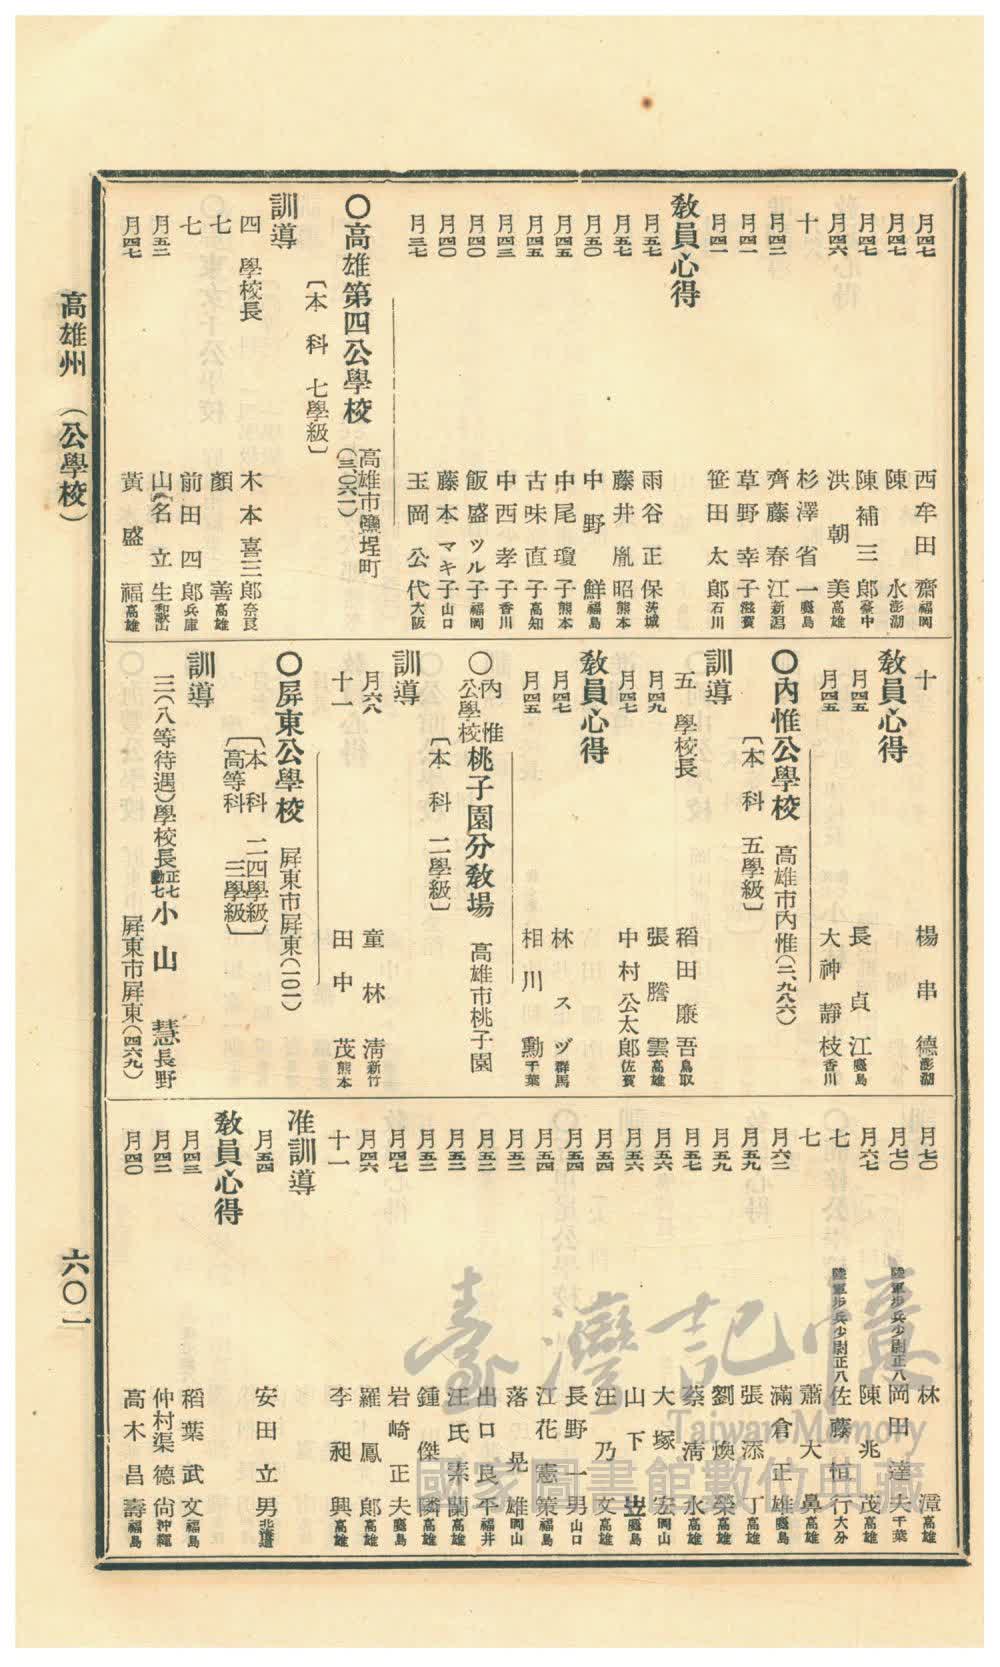 月四七 西牟田齋 福岡
月四七 陳永 澎湖
月四七 陳補三郎 臺中
月四六 洪朝美 高雄
十 杉澤省一 鹿兒島
月四二 齊藤春江 新潟
月四一 草野幸子 滋賀
月四一 笹田太郎 石川
教員心得
月五七 雨谷正保 茨城
月五七 藤井胤昭 熊本
月五〇 中野鮮 福島
月四五 中尾瓊子 熊本
月四五 古味直子 高知
月四三 中西孝子 香川
月四〇 飯盛ツル子 福岡
月四〇 藤本マキ子 山口
月三七 玉岡公代 大阪
〇高雄第四公學校 高雄市鹽埕町(三、〇六一)
〔本科 七學級〕
訓導
四 學校長 木本喜三郎 奈良
七 顏善 高雄
七 前田四郎 兵庫
月五二 山名立生 和歌山
月四七 黃盛福 高雄
十 楊串德 澎湖
教員心得
月四五 長貞江 鹿兒島
月四五 大神靜枝 香川
〇內惟公學校 高雄市內惟(二、九八六)
〔本科 五學級〕
訓導
五 學校長 稻田廉吾 鳥取
月四九 張謄雲 高雄
月四七 中村公太郎 佐賀
教員心得
月四七 林スヅ 群馬
月四五 相川勳 千葉
〇內惟公學校桃子園分教場 高雄市桃子園
〔本科 二學級〕
訓導
月六八 童林清 新竹
十一 田中茂 熊本
〇屏東公學校 屏東市屏東(一〇一)
〔本科 二四學級
高等科 三學級〕
訓導
三(八等待遇)學校長 正七勳七 小山慧 長野
屏東市屏東(四六九)
月七〇 林漳 高雄
月七〇 陸軍步兵少尉正八 岡田達夫 千葉
月六七 陳兆茂 高雄
七 陸軍步兵少尉正八 佐藤恒行 大分
七 蕭大鼻 高雄
月六二 滿倉正雄 鹿兒島
月五九 張添丁 高雄
月五九 劉煥榮 高雄
月五七 蔡清永 高雄
月五六 大塚宏 岡山
月五六 山下豊 鹿兒島
月五四 汪乃文 高雄
月五四 長野一男 山口
月五四 江花憲策 福島
月五二 落晃雄 岡山
月五二 出口良平 福井
月五二 汪氏素蘭 高雄
月五二 鍾傑麟 高雄
月四七 岩崎正夫 鹿兒島
月四六 羅鳳郎 高雄
十一 李昶興 高雄
准訓導
月五四 安田立男 北海道
教員心得
月四三 稻葉武文 福島
月四二 仲村渠德尙 沖繩
月四〇 高木昌壽 福島
高雄州 (公學校)
六〇一
臺灣記憶
Taiwan Memory
國家圖書館數位典藏